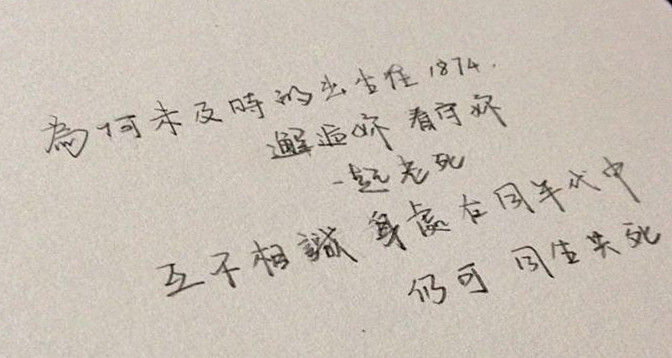 為何未及時的出生在1874.
邂逅妳 看守妳
一起老死
互不相識 身處在同年代中
仍可 同生共死